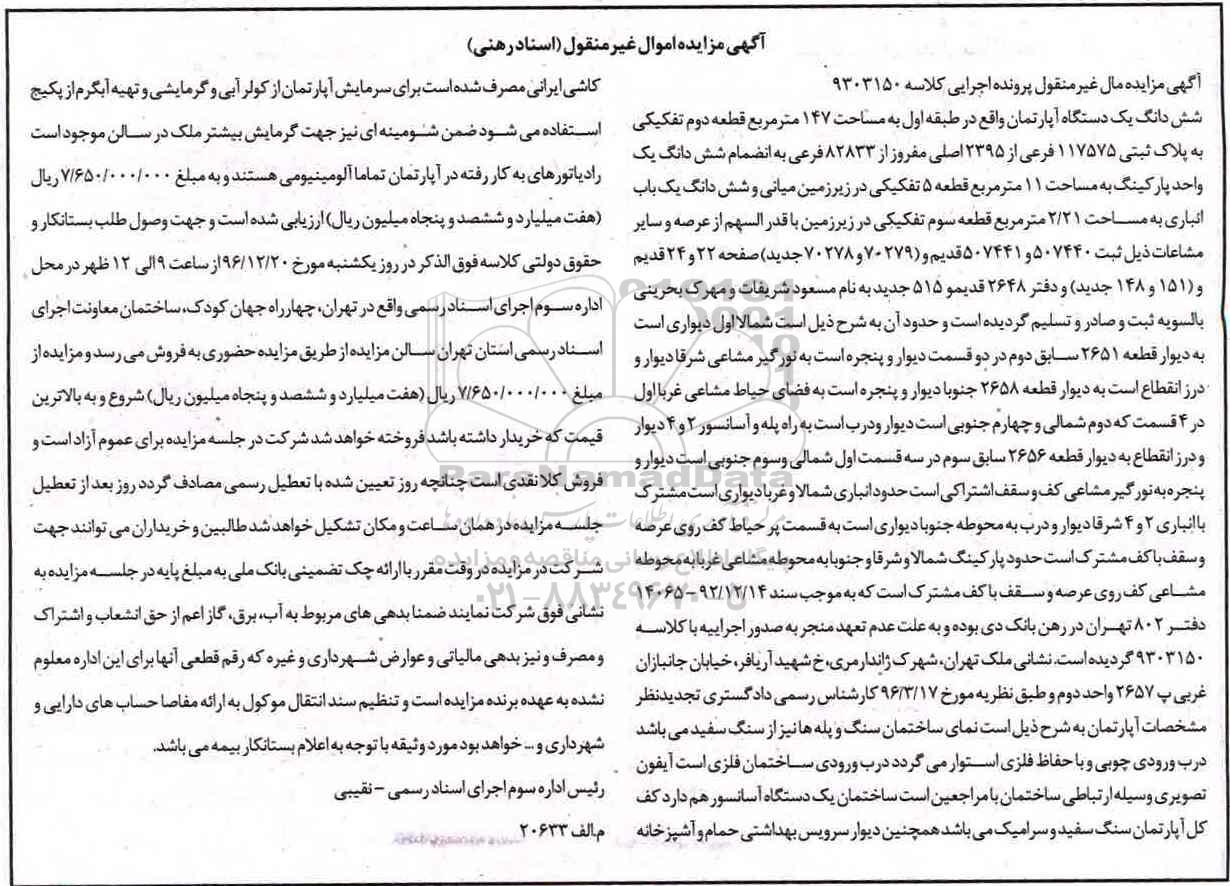 آگهی مزایده اموال غیرمنقول (اسناد رهنی)
آگهی مزایده مال غیرمنقول پرونده اجرایی کلاسه ۹۳۰۳۱۵۰
شش دانگ یک دستگاه آپارتمان واقع در طبقه اول به مساحت ۱۴۷ مترمربع قطعه دوم تفکیکی
به پلاک ثبتی ۱۱۷۵۷۵ فرعی از ۲۳۹۵ اصلی مفروز از ۸۲۸۳۳ فرعی به انضمام شش دانگ یک
واحد پارکینگ به مساحت ۱۱ مترمربع قطعه ۵ تفکیکی در زیرزمین میانی و شش دانگ یک باب
انباری به مساحت ۲/۲۱ مترمربع قطعه سوم تفکیکی در زیرزمین با قدر السهم از عرصه و سایر
مشاعات ذیل ثبت ۵۰۷۴۴۰ و ۵۰۷۴۴۱ قدیم و (۷۰۲۷۹ و ۷۰۲۷۸ جدید) صفحه ۲۲ و ۲۴ قدیم
و (۱۵۱ و ۱۴۸ جدید) و دفتر ۲۶۴۸ قدیمو ۵۱۵ جدید به نام مسعود شریفات و مهرک بحرینی
بالسویه ثبت و صادر و تسلیم گردیده است و حدود آن به شرح ذیل است شمالا اول دیواری است
به دیوار قطعه ۲۶۵۱ سابق دوم در دو قسمت دیوار و پنجره است به نورگیر مشاعی شرقا دیوار و
درز انقطاع است به دیوار قطعه ۲۶۵۸ جنوبا دیوار و پنجره است به فضای حیاط مشاعی غربا اول
در ۴ قسمت که دوم شمالی و چهارم جنوبی است دیوار ودرب است به راه پله و آسانسور ۲ و ۴ دیوار
و درز انقطاع به دیوار قطعه ۲۶۵۶ سابق سوم در سه قسمت اول شمالی وسوم جنوبی است دیوار و
پنجره به نورگیر مشاعی کف و سقف اشتراکی است حدود انباری شمالا و غربا دیواری است مشترک
با انباری ۲ و ۴ شرقا دیوار و درب به محوطه جنوبا دیواری است به قسمت پر حیاط کف روی عرصه
و سقف با کف مشترک است حدود پارکینگ شمالا و شرقا و جنوبا به محوطه مشاعی غربا به محوطه
مشاعی کف روی عرصه و سقف با کف مشترک است که به موجب سند ۹۲/۱۲/۱۴ – ۱۴۰۶۵
دفتر ۸۰۲ تهران در رهن بانک دی بوده و به علت عدم تعهد منجر به صدور اجراییه با کلاسه
۹۳۰۳۱۵۰ گردیده است. نشانی ملک تهران، شهرک ژاندارمری، خ شهید آریافر، خیابان جانبازان
غربی پ ۲۶۵۷ واحد دوم و طبق نظریه مورخ ۹۶/۳/۱۷ کارشناس رسمی دادگستری تجدیدنظر
مشخصات آپارتمان به شرح ذیل است نمای ساختمان سنگ و پله ها نیز از سنگ سفید می باشد
درب ورودی چوبی و با حفاظ فلزی استوار می گردد درب ورودی ساختمان فلزی است آیفون
تصویری وسیله ارتباطی ساختمان با مراجعین است ساختمان یک دستگاه آسانسور هم دارد کف
کل آپارتمان سنگ سفید و سرامیک می باشد همچنین دیوار سرویس بهداشتی حمام و آشپزخانه
کاشی ایرانی مصرف شده است برای سرمایش آپارتمان از کولر آبی و گرمایشی و تهیه آبگرم از پکیج
استفاده می شود ضمن شومینه ای نیز جهت گرمایش بیشتر ملک در سالن موجود است
رادیاتورهای به کار رفته در آپارتمان تماما آلومینیومی هستند و به مبلغ ۷/۶۵۰/۰۰۰/۰۰۰ ریال
(هفت میلیارد و ششصد و پنجاه میلیون ریال) ارزیابی شده است و جهت وصول طلب بستانکار و
حقوق دولتی کلاسه فوق الذکر در روز یکشنبه مورخ ۹۶/۱۲/۲۰ از ساعت ۹ الی ۱۲ ظهر در محل
اداره سوم اجرای اسناد رسمی واقع در تهران، چهارراه جهان کودک، ساختمان معاونت اجرای
اسناد رسمی استان تهران سالن مزایده از طریق مزایده حضوری به فروش می رسد و مزایده از
مبلغ ۷/۶۵۰/۰۰۰/۰۰۰ ریال (هفت میلیارد و ششصد و پنجاه میلیون ریال) شروع و به بالاترین
قیمت که خریدار داشته باشد فروخته خواهد شد شرکت در جلسه مزایده برای عموم آزاد است و
فروش کلا نقدی است چنانچه روز تعیین شده با تعطیل رسمی مصادف گردد روز بعد از تعطیل
جلسه مزایده در همان ساعت و مکان تشکیل خواهد شد طالبین و خریداران می توانند جهت
شرکت در مزایده در وقت مقرر با ارائه چک تضمینی بانک ملی به مبلغ پایه در جلسه مزایده به
نشانی فوق شرکت نمایند ضمنا بدهی های مربوط به آب، برق، گاز اعم از حق انشعاب و اشتراک
و مصرف و نیز بدهی مالیاتی و عوارض شهرداری و غیره که رقم قطعی آنها برای این اداره معلوم
نشده به عهده برنده مزایده است و تنظیم سند انتقال موکول به ارائه مفاصا حساب های دارایی و
شهرداری و ... خواهد بود مورد وثیقه با توجه به اعلام بستانکار بیمه می باشد.
رئیس اداره سوم اجرای اسناد رسمی – نقیبی
م.الف ۲۰۶۳۳
ParsNamadData
۰۲۱-۸۸۳۴۹۶۷۰-۵